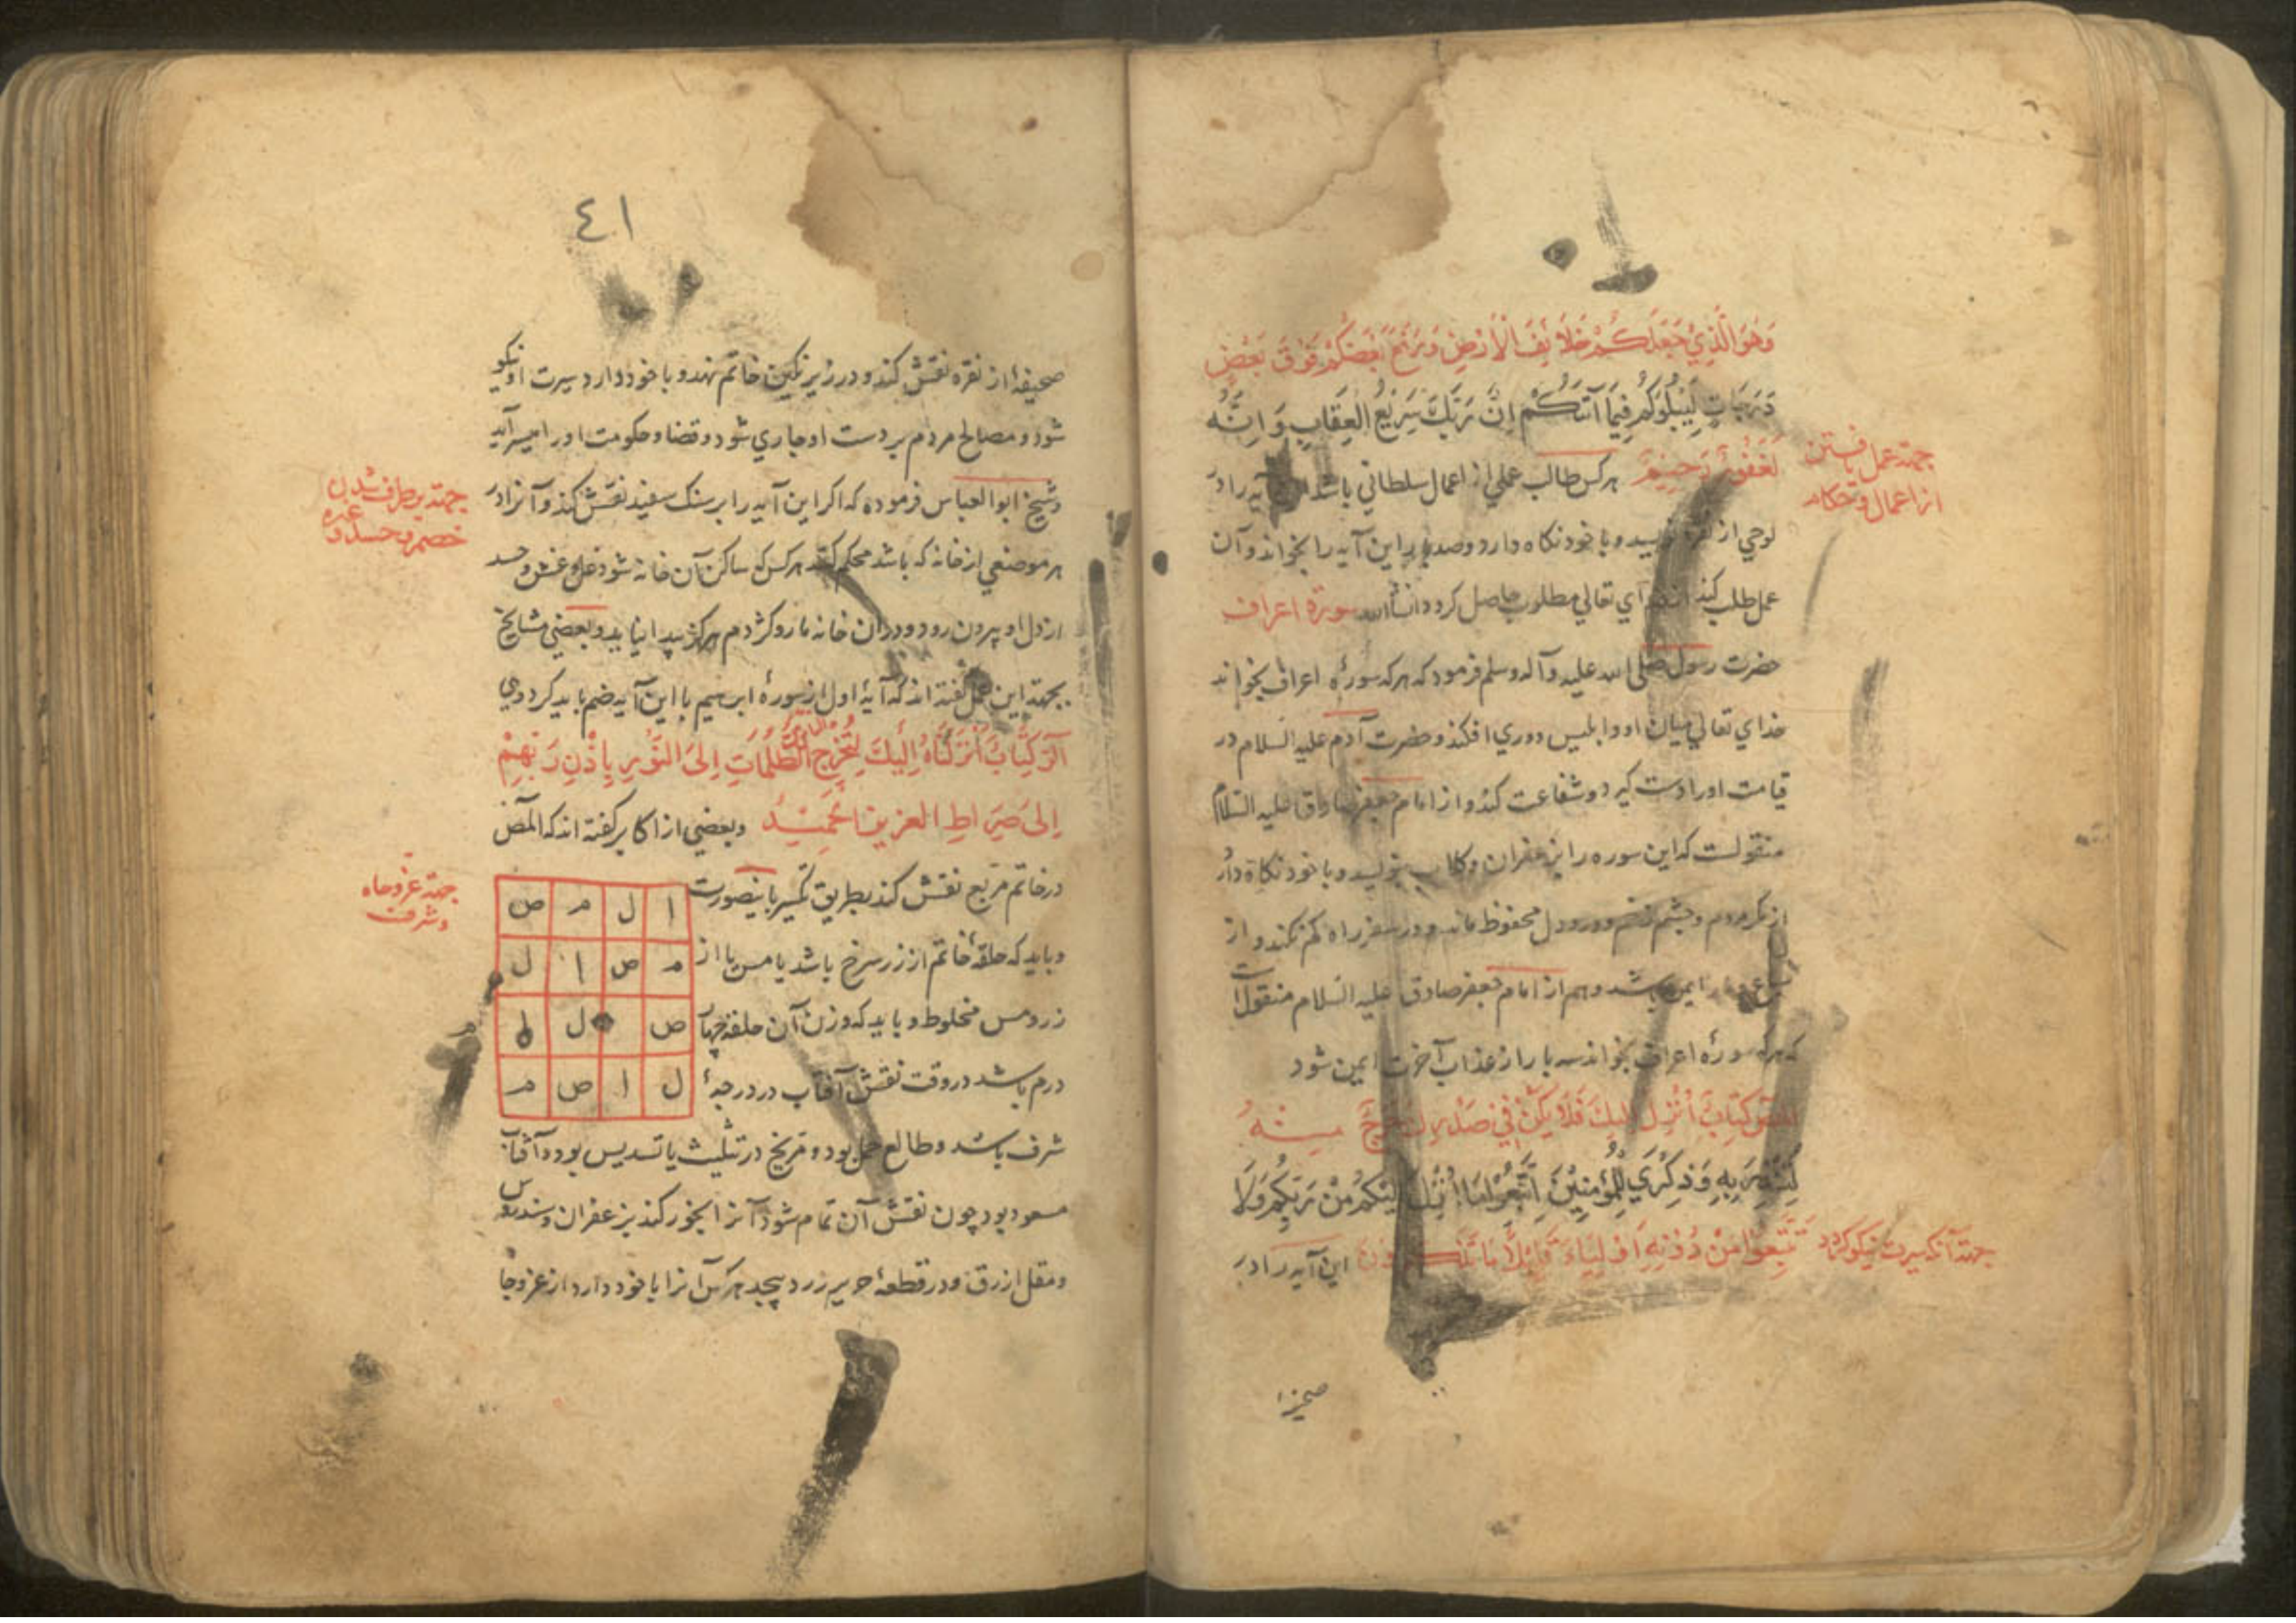 وَهُوَ الَّذِي جَعَلَكُمْ خَلَائِفَ الْأَرْضِ وَرَفَعَ بَعْضَكُمْ فَوْقَ بَعْضٍ
دَرَجَاتٍ لِيَبْلُوَكُمْ فِيمَا آتَكُمْ اِنَّ رَبَّكَ سَرِيْعُ الْعِقَابِ وَاِنَّهُ
لَغَفُوْرٌ رَحِيْمٌ هر کس طالب عملي از اعمال سلطاني باشد آیه را در
جهة عمل یافتن
از اعمال و حکام
لوحي از نقره نویسد و با خود نکاه دارد و صد بار این آیه را بخواند و آن
عمل طلب کند خدآي تعالي مطلوب حاصل کردد انشأالله سورة اعراف
حضرت رسول صلی الله علیه و آله وسلم فرمود که هر که سورۀ اعراف بخواند
خداي تعالي میان او و ابلیس دوري افکند و حضرت آدم علیه السلام در
قیامت او را دست کیرد و شفاعت کند و از امام جعفر صادق علیه السّلام
منقولست که این سوره را بزعفران و کلاب بنویسد و با خود نکاه دارد
از مکر مردم و چشم زخم و درد دل محفوظ ماند و در سفر راه کم نکند و از
ایمن باشد و هم از امام جعفر صادق علیه السّلام منقول است
که هر که سورۀ اعراف بخواند سه بار از عذاب آخرت ایمن شود
المص كِتَابٌ اُنْزِلَ اِلَيْكَ فَلَا يَكُنْ فِي صَدْرِكَ حَرَجٌ مِنْهُ
لِتُنْذِرَ بِهِ وَذِكْرَي لِلْمُؤْمِنِيْنَ اِتَّبِعُوْا مَا اُنْزِلَ اِلَيْكُمْ مِنْ رَبِّكُمْ وَلَا
تَتَّبِعُوْا مِنْ دُوْنِهِ اَوْلِيَاءَ قَلِيْلًا مَا تَذَكَّرُوْنَ این آیه را در
جهة آنکه سیرت نیکو کردد
صحیفۀ
٤١
صحیفۀ از نقره نقش کند و در زیر نکین خاتم نهد و با خود دارد سیرت او نیکو
شود و مصالح مردم بر دست او جاري شود و قضا و حکومت او را میسر آید
و شیخ ابوالعباس فرموده که اکر این آیه را بر سنک سفید نقش کند و آنرا در
جهة برطرف شدن
خصم و حسد و غیره
هر موضعي از خانه که باشد محکم کند هر کس که ساکن آن خانه شود غل و غش و حسد
از دل او بیرون رود و در آن خانه مار و کژدم هرکز پیدا نیاید و بعضي مشایخ
بجهة این عمل کفته اند که آیۀ اول از سورۀ ابرهیم با این آیه ضم باید کرد وهي
الٓر كِتَابٌ اَنْزَلْنَاهُ اِلَيْكَ لِتُخْرِجَ النَّاسَ مِنَ الظُّلُمَاتِ اِلَى النُّوْرِ بِاِذْنِ رَبِّهِمْ
اِلىٰ صِرَاطِ الْعَزِيزِ الْحَمِيْدِ و بعضي از اکابر کفته اند که المص
در خاتم مربّع نقش کند بطریق تکسیر باینصورت
جهة عز و جاه
و شرف
ا ل م ص
م ص ا ل
ص ل ا
ل ا ص م
م
و باید که حلقۀ خاتم از زر سرخ باشد یا مس یا از
زر و مس مخلوط و باید که وزن آن حلقه چهار
درم باشد در وقت نقش آفتاب در درجۀ
شرف باشد و طالع حمل بود و مریخ در تثلیث یا تسدیس بود و آفتاب
مسعود بود چون نقش آن تمام شود آنرا بخور کند بزعفران و سندروس
و مقل ازرق و در قطعۀ حریر زرد پیچد هر کس آنرا با خود دارد از عز و جا